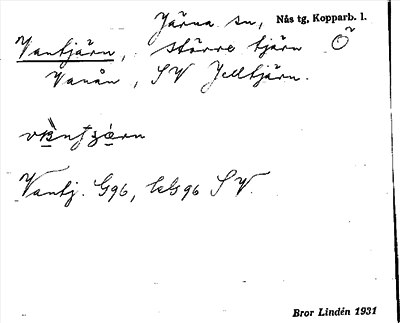 Järna sn, Nås tg, Kopparb. l.
Vantjärn, större tjärn Ö
Vanån, SV Jedtjärn.
Vantj. G96, EkG96 SV.
Bror Lindén 1931